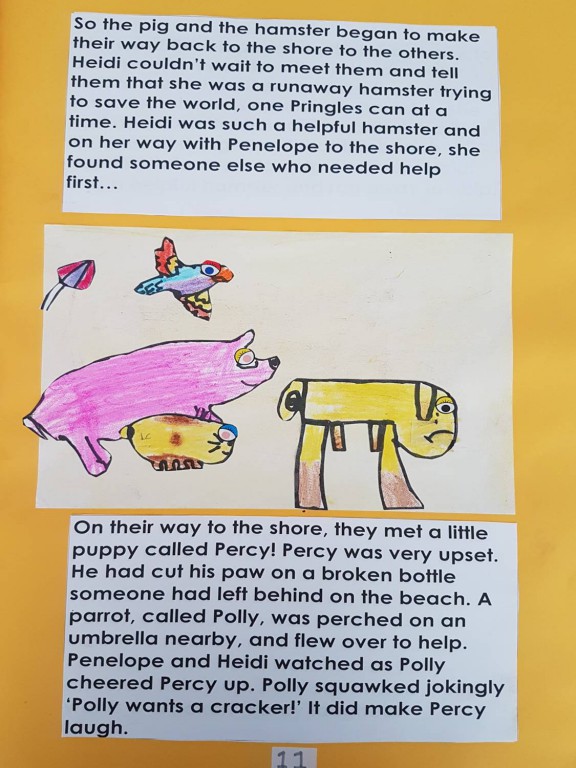 So the pig and the hamster began to make
their way back to the shore to the others.
Heidi couldn't wait to meet them and tell
them that she was a runaway hamster trying
to save the world, one Pringles can at a
time. Heidi was such a helpful hamster and
on her way with Penelope to the shore, she
found someone else who needed help
first...
On their way to the shore, they met a little
puppy called Percy! Percy was very upset.
He had cut his paw on a broken bottle
someone had left behind on the beach. A
parrot, called Polly, was perched on an
umbrella nearby, and flew over to help.
Penelope and Heidi watched as Polly
cheered Percy up. Polly squawked jokingly
‘Polly wants a cracker!’ It did make Percy
laugh.
11